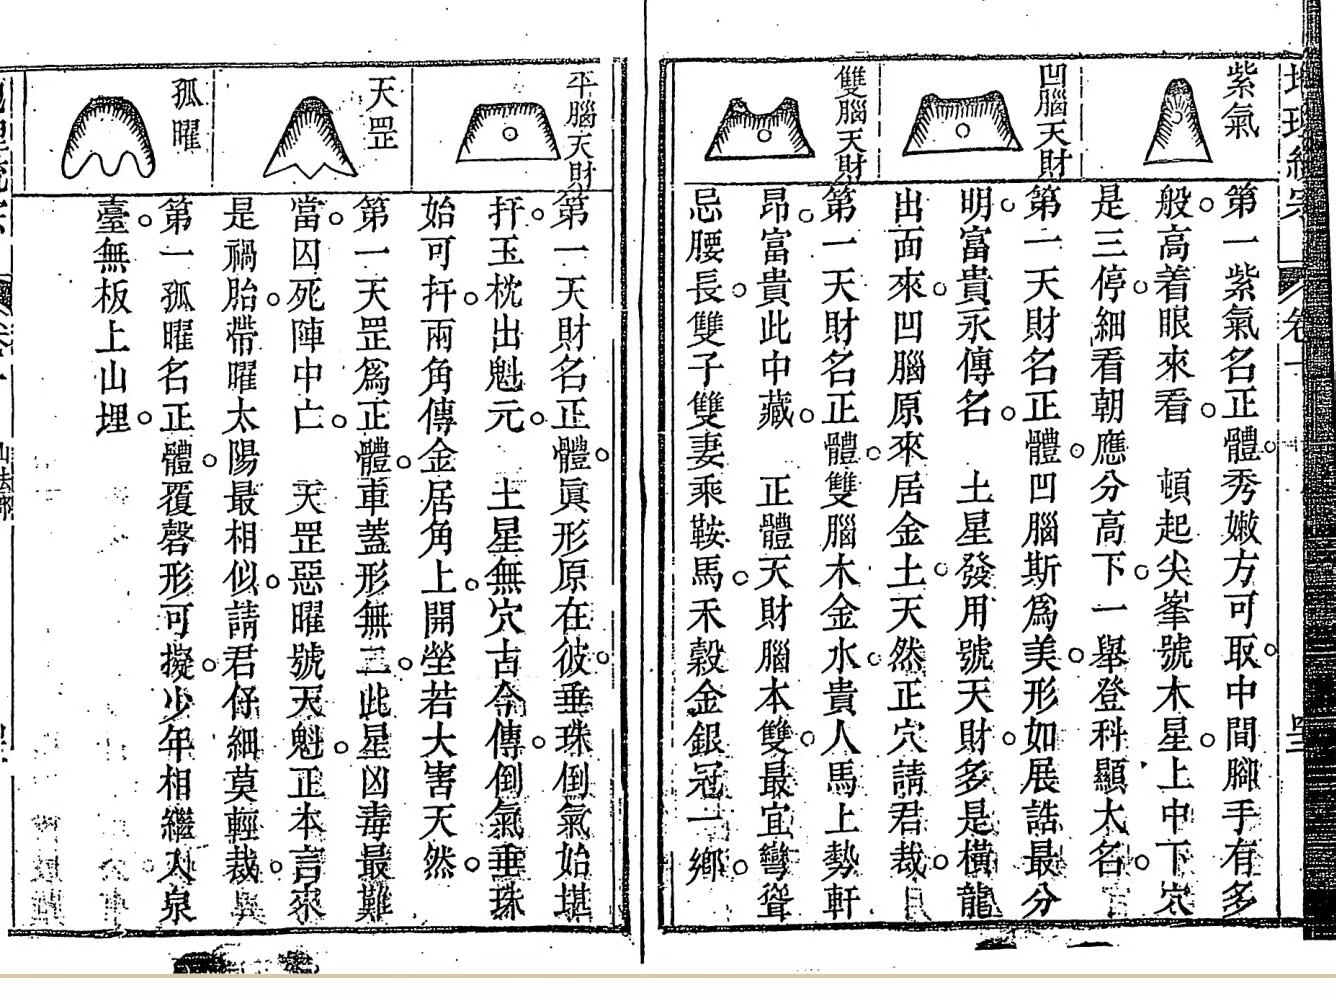 紫氣
第一紫氣名正體。秀嫩方可取。中間腳手有多
般。高着眼來看。　頓起尖峯號木星。上中下穴
是三停。細看朝應分高下。一舉登科顯大名。
凹腦天財
第一天財名正體。凹腦斯爲美。形如展誥最分
明。富貴永傳名。　土星發用號天財。多是橫龍
出面來。凹腦原來居金土。天然正穴請君裁。
雙腦天財
第一天財名正體。雙腦木金水。貴人馬上勢軒
昂。富貴此中藏。　正體天財腦本雙。最宜彎聳
忌腰長。雙子雙妻乘鞍馬。禾穀金銀冠一鄉。
地理統宗
卷十
平腦天財
第一天財名正體。眞形原在彼。垂珠倒氣始堪
扞。玉枕出魁元。　土星無穴古今傳。倒氣垂珠
始可扞。兩角傳金居角上。開塋若大害天然。
天罡
第一天罡爲正體。車蓋形無二。此星凶毒最難
當。囚死陣中亡。　天罡惡曜號天魁。正本言來
是禍胎。帶曜太陽最相似。請君仔細莫輕裁。
孤曜
第一孤曜名正體。覆磬形可擬。少年相繼入泉
臺。無板上山埋。